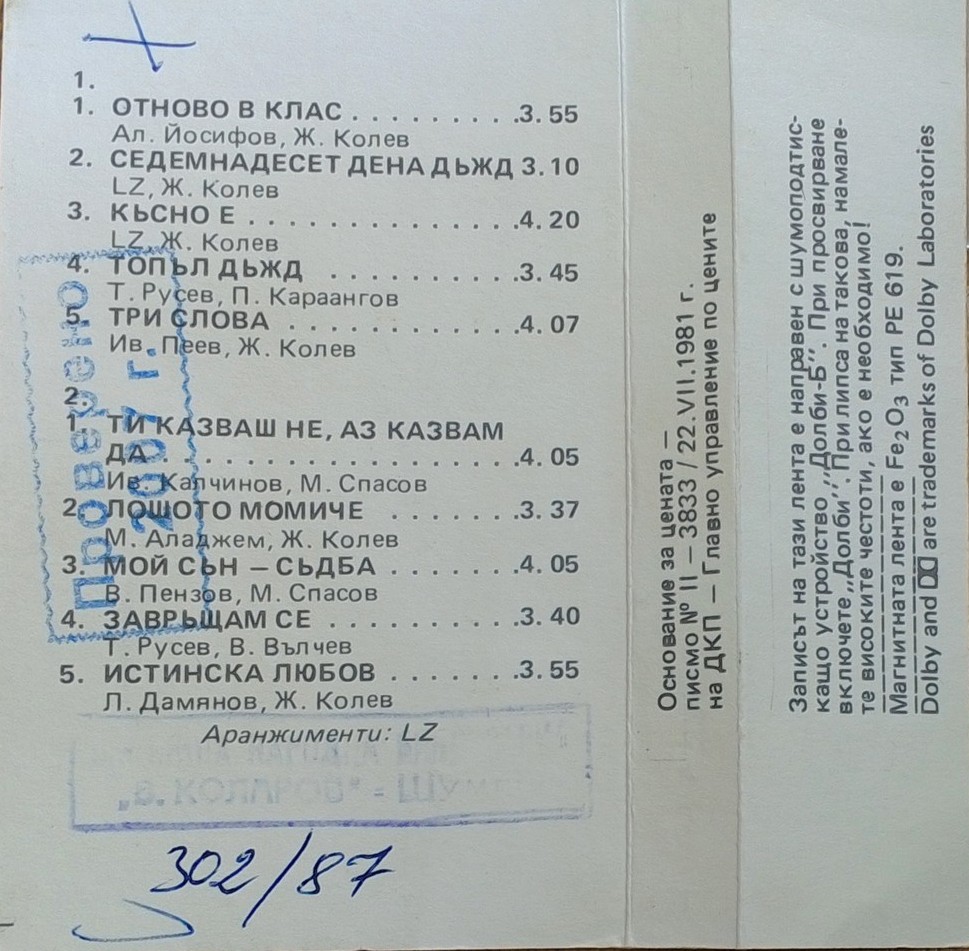 1.
1. ОТНОВО В КЛАС . . . . . . . . .3. 55
Ал. Йосифов, Ж. Колев
2. СЕДЕМНАДЕСЕТ ДЕНА ДЪЖД 3. 10
LZ, Ж. Колев
3. КЪСНО Е . . . . . . . . . . . . . .4. 20
LZ, Ж. Колев
4. ТОПЪЛ ДЪЖД . . . . . . . . . .3. 45
Т. Русев, П. Караангов
5. ТРИ СЛОВА . . . . . . . . . . . .4. 07
Ив. Пеев, Ж. Колев
2.
1. ТИ КАЗВАШ НЕ, АЗ КАЗВАМ
ДА . . . . . . . . . . . . . . . . . .4. 05
Ив. Капчинов, М. Спасов
2. ЛОШОТО МОМИЧЕ . . . . . . .3. 37
М. Аладжем, Ж. Колев
3. МОЙ СЪН – СЪДБА . . . . . . .4. 05
В. Пензов, М. Спасов
4. ЗАВРЪЩАМ СЕ . . . . . . . . . .3. 40
Т. Русев, В. Вълчев
5. ИСТИНСКА ЛЮБОВ . . . . . . .3. 55
Л. Дамянов, Ж. Колев
Аранжименти: LZ
Проверено
2007 г.
302/87
Основание за цената –
писмо № II – 3833 / 22.VII.1981 г.
на ДКП – Главно управление по цените
Записът на тази лента е направен с шумоподтис-
кащо устройство „Долби-Б". При просвирване
включете „Долби". При липса на такова, намале-
те високите честоти, ако е необходимо!
Магнитната лента е Fe2O3 тип PE 619.
Dolby and DD are trademarks of Dolby Laboratories